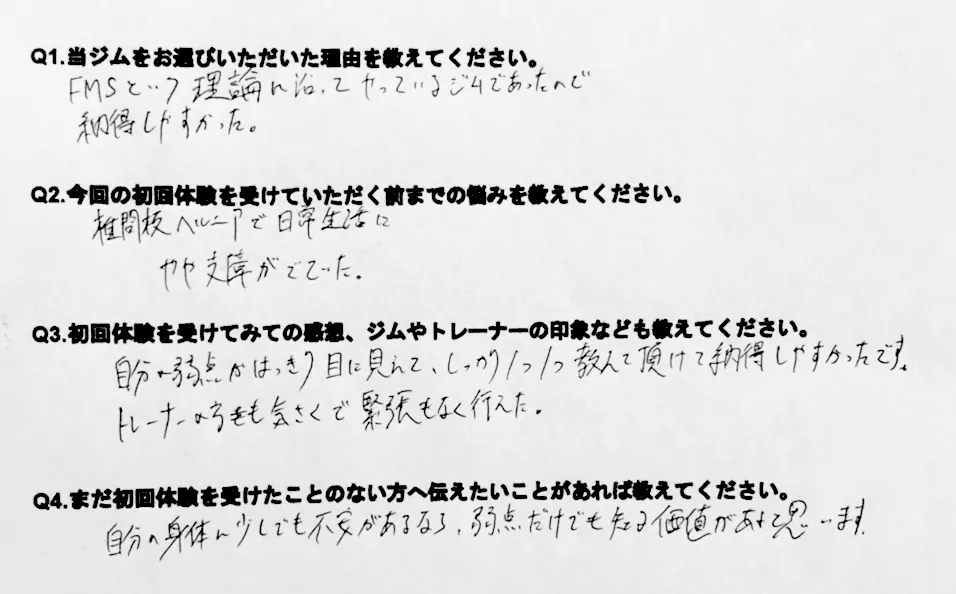 Q1.当ジムをお選びいただいた理由を教えてください。
FMSという理論に沿ってやっているジムであったので
納得しやすかった。
Q2.今回の初回体験を受けていただく前までの悩みを教えてください。
椎間板ヘルニアで日常生活に
やや支障がでていた。
Q3.初回体験を受けてみての感想、ジムやトレーナーの印象なども教えてください。
自分の弱点がはっきり目に見えて、しっかり1つ1つ教えて頂けて納得しやすかったです。
トレーナーの方も気さくで緊張もなく行えた。
Q4.まだ初回体験を受けたことのない方へ伝えたいことがあれば教えてください。
自分の身体に少しでも不安があるなら、弱点だけでも知る価値があると思います。